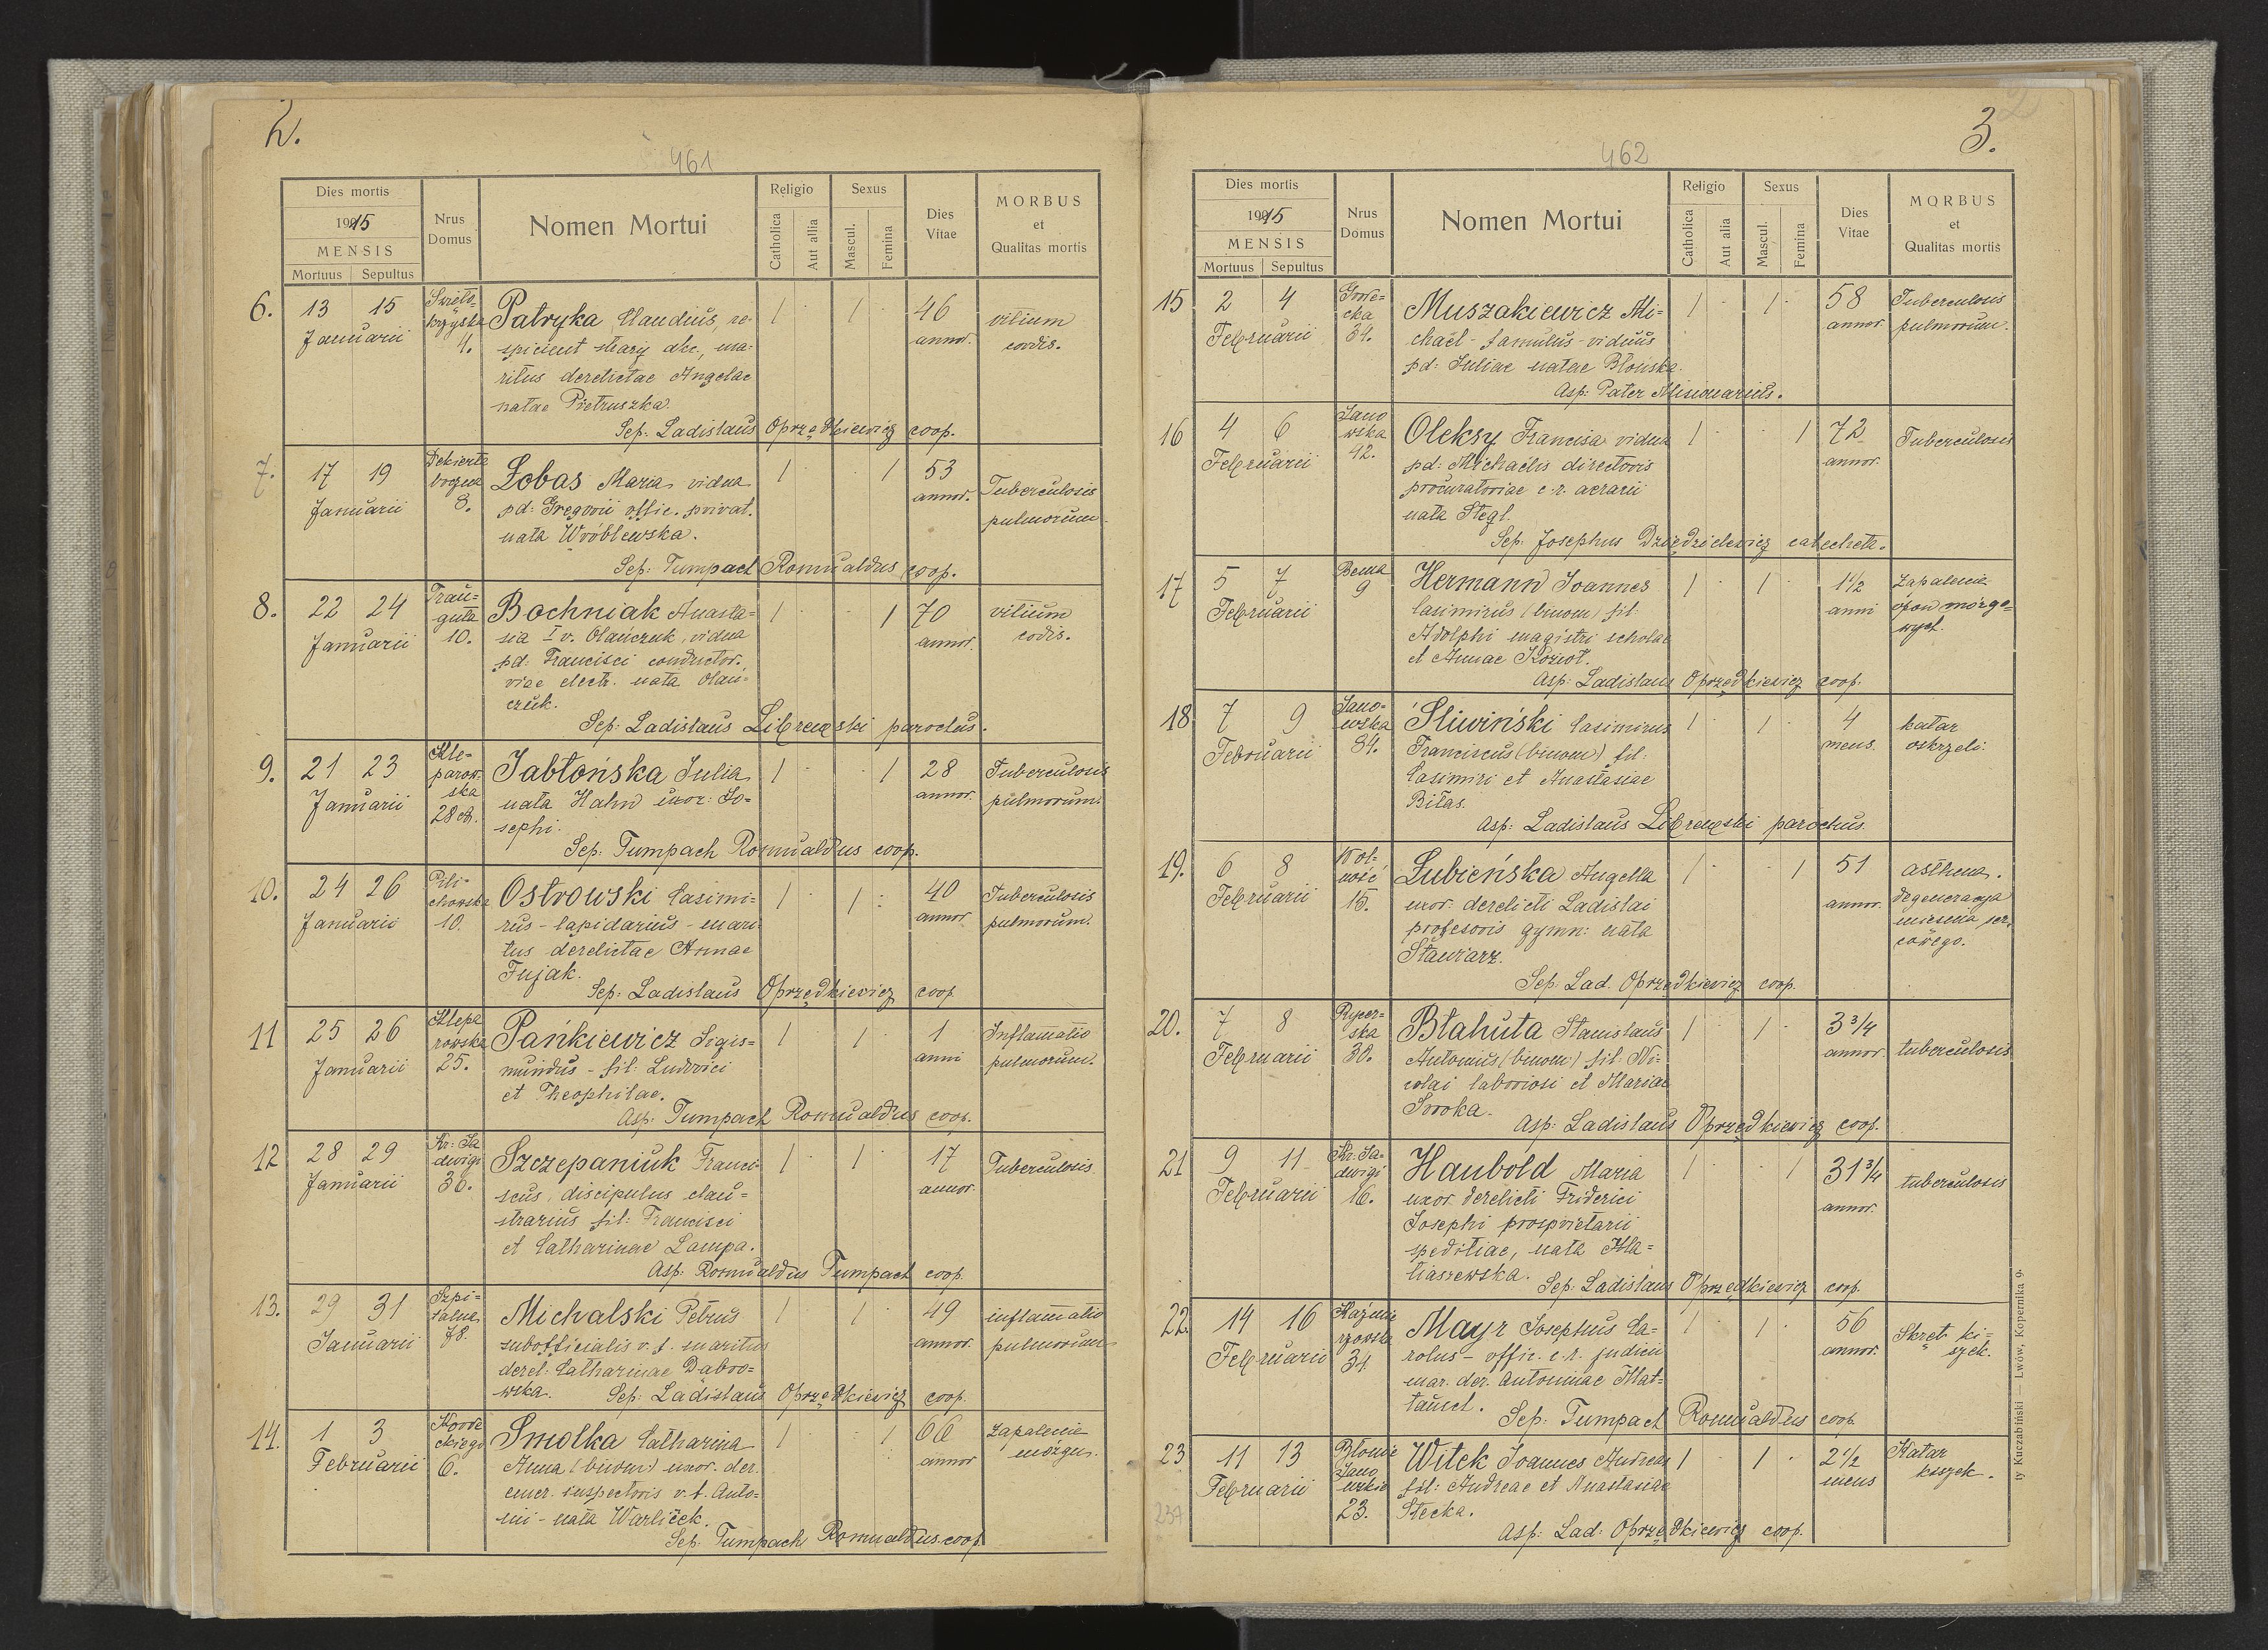 2.
461
Dies mortis
1915
MENSIS
Mortuus Sepultus
Nrus Domus
Nomen Mortui
Religio
Catholica
Aut allia
Sexus
Mascul.
Femina
Dies Vitae
MORBUS
et
Qualitas mortis
6. 13 15 Januarii
Święto-
krzyska
4.
Patryka Claudius, re-
spicient straży akc., ma-
ritus derelictae Angelae
natae Pietruszka.
Sep: Ladislaus Oprzędkiewicz coop.
1 1 46 annor.
vitium
cordis.
7. 17 19 Januarii
8.
Łobas Maria vidua
pd: Gregorii offic. privat.
nata Wróblewska.
Sep: Tumpach Romualdus coop.
1 1 53 annor.
Tuberculosis
pulmorum.
8. 22 24 Januarii
Trau-
guta
10.
Bochniak Anasta-
sia I v. Olańczuk, vidua
pd: Francisci conductor.
viae electr. nata Olan-
czuk.
Sep: Ladislaus Librewski parochus.
1 1 70 annor.
vitium
codis.
9. 21 23 Januarii
Kle-
parow-
ska
28
Jabłońska Julia
nata Hahn uxor: Jo-
sephi.
Sep: Tumpach Romualdus coop.
1 1 28 annor.
Tuberculosis
pulmorum.
10. 24 26 Januarii
Pili-
chowska
10.
Ostrowski Casimi-
rus - lapidarius - mari-
tus derelictae Annae
Fujak.
Sep: Ladislaus Oprzędkiewicz coop.
1 1 40 annor.
Tuberculosis
pulmorum.
11 25 26 Januarii
Klepa
rowska
25.
Pańkiewicz Sigis-
mundus - fil: Ludovici
et Theophilae.
Asp: Tumpach Romualdus coop.
1 1 1 anni
Inflamatio
pulmorum.
12 28 29 Januarii
Kr: Ja
dwigi
36.
Szczepaniuk Franci-
scus, discipulus clau-
strarius fil: Francisci
et Catharinae Lampa.
Asp: Romualdus Tumpach coop.
1 1 17 annor.
Tuberculosis
13. 29 31 Januarii
Szpi-
talna
78.
Michalski Petrus
subofficialis v. f. maritus
derel: Catharinae Dabro-
wska.
Sep: Ladislaus Oprzędkiewicz coop.
1 1 49 annor.
inflammatio
pulmorum
14. 1 3 Februarii
Korde
ckiego
6.
Smolka Catharina
Anna (binom) uxor. der.
emer. inspectoris v. f. Anto-
nii - nata Warliček.
Sep: Tumpach Romualdus coop.
1 1 66 annor
zapalenie
mózgu.
3.
462
Dies mortis
1915
MENSIS
Mortuus Sepultus
Nrus Domus
Nomen Mortui
Religio
Catholica
Aut alia
Sexus
Mascul.
Femina
Dies Vitae
MORBUS
et
Qualitas mortis
15 2 4 Februarii
Gróde-
cka
34.
Muszakiewicz Mi-
chaël - famulus - viduus
pd: Juliae natae Błońska.
Asp: Pater Misionarius.
1 1 58 annor.
Tuberculosis
pulmorum.
16 4 6 Februarii
Jano
wska
42.
Oleksy Francisca vidua
pd: Michaëlis directoris
procuratoriae c. r. aerarii
nata Stegl.
Sep: Josephus Dziedzielewicz catecheta.
1 1 72 annor.
Tuberculosis
17 5 7 Februarii
Bema
9
Hermann Joannes
Casimirus (binom) fil:
Adolphi magistri scholae
et Annae Kozioł.
Asp: Ladislaus Oprzędkiewicz coop.
1 1 1 1/2 anni
zapalenie
opon mózgo-
wych.
18 7 9 Februarii
Jano-
wska
84.
Śliwiński Casimirus
Franciscus (binom) fil:
Casimiri et Anastasiae
Biłas.
Asp: Ladislaus Librewski parochus.
1 1 4 mens.
katar
oskrzeli.
19. 6 8 Februarii
Wol-
ność
15.
Łubieńska Angella
uxor. derelicti Ladislai
profesoris gymn: nata
Stawiarz.
Sep: Lad. Oprzędkiewicz coop.
1 1 51 annor.
asthena.
degeneracya
mięśnia ser-
cowego.
20. 7 8 Februarii
Rycer-
ska
30.
Błahuta Stanislaus
Antonius (binom) fil: Ni-
colai laboriosi et Mariae
Sroka.
Asp: Ladislaus Oprzędkiewicz coop.
1 1 3 3/4 annor.
tuberculosis
21 9 11 Februarii
Kr: Ja-
dwigi
16.
Haubold Maria
uxor. derelicti Friderici
Josephi prosprietarii
speditiae, nata Ma-
tiaszewska.
Sep: Ladislaus Oprzędkiewicz coop.
1 1 31 3/4 annor.
tuberculosis
22. 14 16 Februarii
Kaźmie
rzowska
34
Mayr Josephus Ca-
rolus - offic. c. r. judicii
mar. der. Antoninae Mat-
tausch.
Sep: Tumpach Romualdus coop.
1 1 56 annor.
Skręt ki-
szek.
23 11 13 Februarii
Błonie
Jano
wskie
23.
Witek Joannes Andreas
fil: Andreae et Anastasiae
Stecka.
Asp: Lad: Oprzędkiewicz coop.
1 1 2 1/2 mens
Katar
kiszek.
237
ty Kuczabiński — Lwów, Kopernika 9.